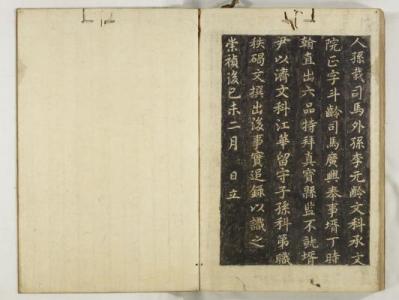 人孫栽司馬外孫李元齡文科承文
院正字斗齡司馬廣興奉事壻丁時
翰直出六品特拜真寶縣監不就壻
尹以濟文科江華留守子孫科第職
秩碣文撰出後事實追錄以識之
崇禎後己未二月 日立